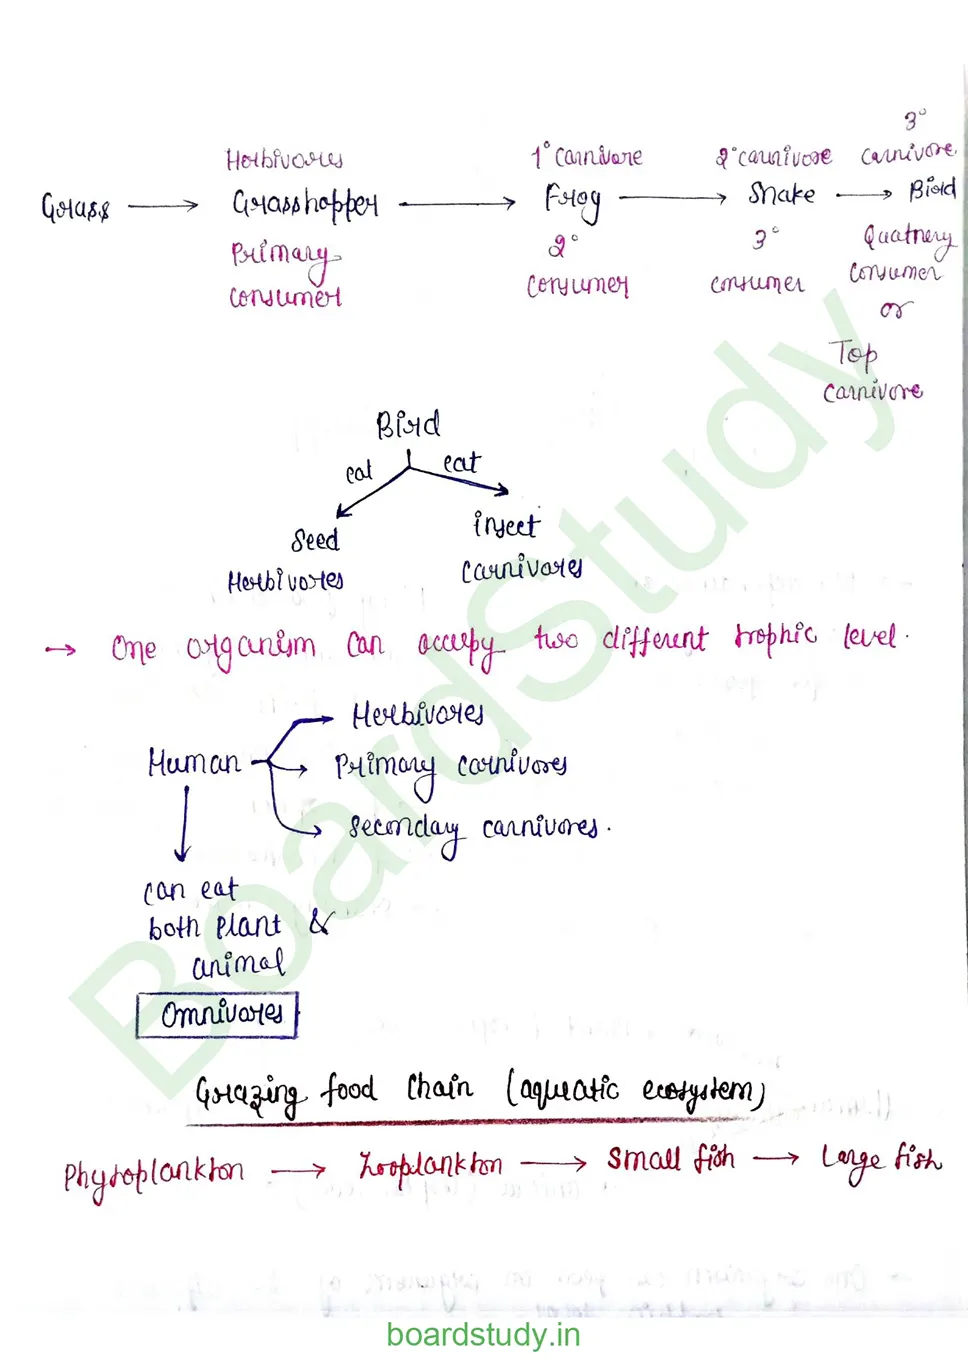 3°
Herbivores 1° Carnivore 2° carnivore carnivore
Grass → Grasshopper → Frog → Snake → Bird
Primary 2° 3° Quatnery
consumer consumer consumer consumer
or
Top
carnivore
Bird
eat eat
Seed insect
Herbivores carnivores
→ One organism can occupy two different trophic level.
Herbivores
Human → Primary carnivores
Seconday carnivores.
can eat
both plant &
animal
Omnivores
Grazing food chain (aquatic ecosystem)
Phytoplankton → Zooplankton → Small fish → Large fish
BoardStudy
boardstudy.in